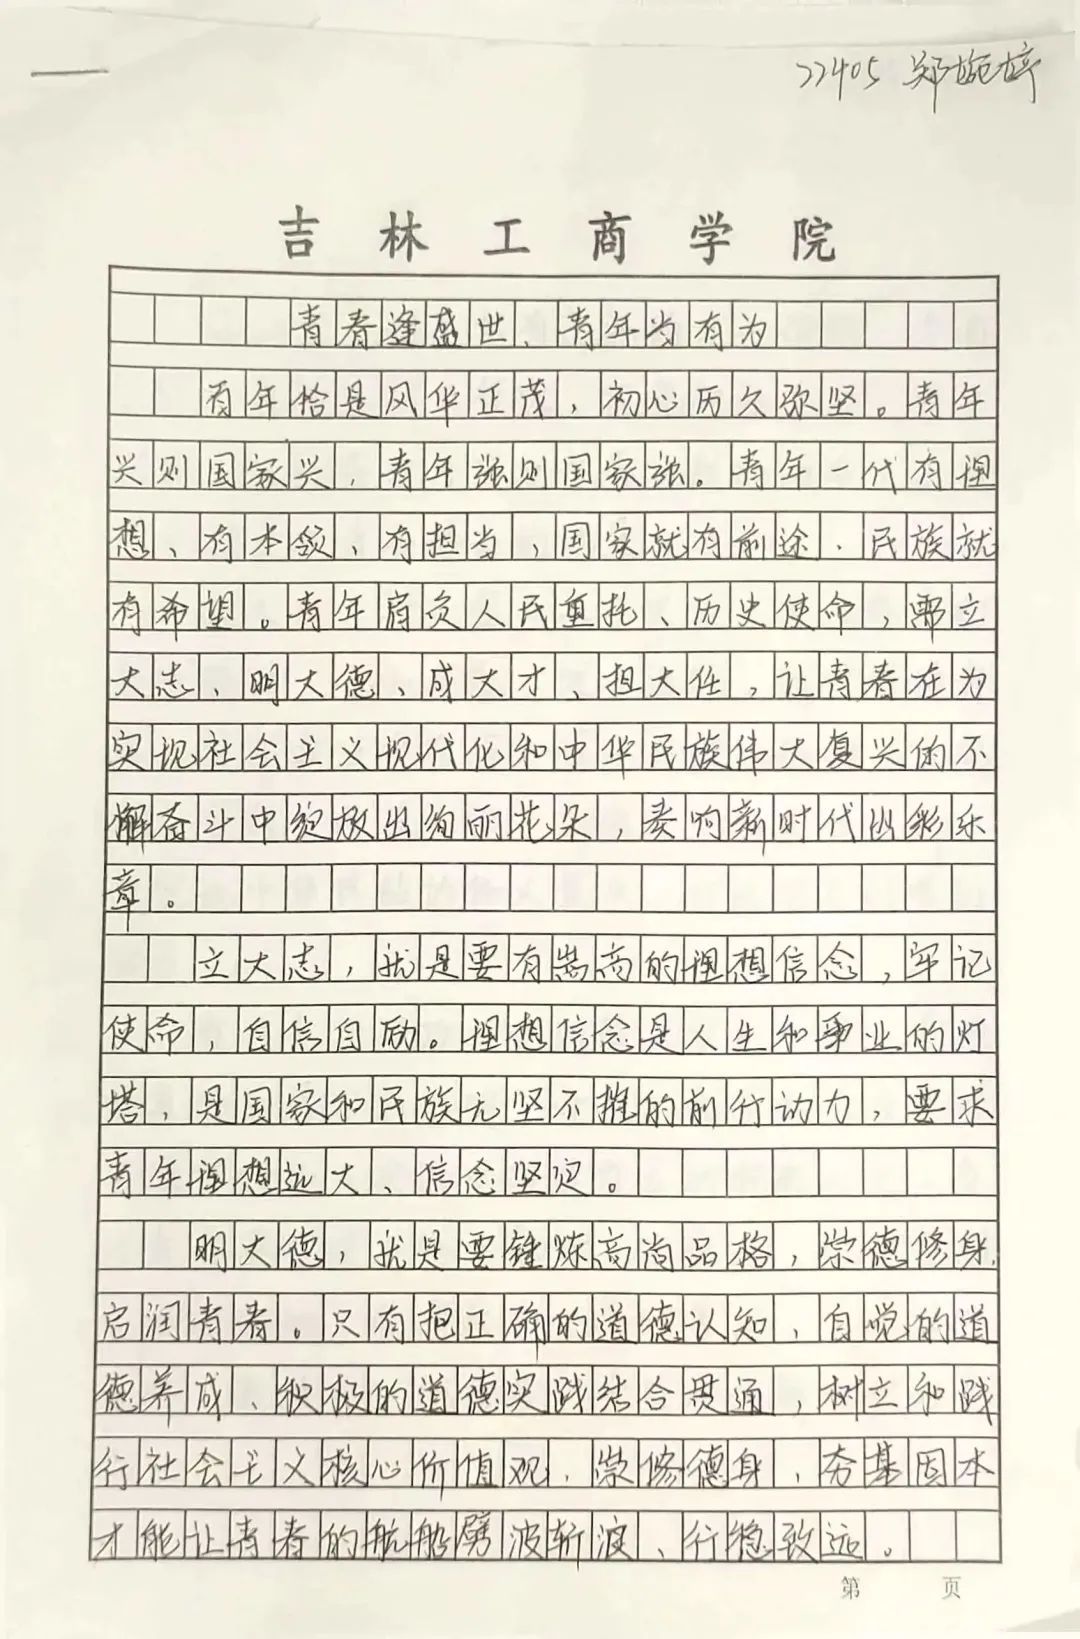 22405 郑婉婷
吉林工商学院
青春逢盛世、青年当有为
百年恰是风华正茂，初心历久弥坚。青年
兴则国家兴，青年强则国家强。青年一代有理
想、有本领、有担当，国家就有前途、民族就
有希望。青年肩负人民重托、历史使命，需立
大志、明大德、成大才、担大任，让青春在为
实现社会主义现代化和中华民族伟大复兴的不
懈奋斗中绽放出绚丽花朵，奏响新时代出彩乐
章。
立大志，就是要有崇高的理想信念，牢记
使命，自信自励。理想信念是人生和事业的灯
塔，是国家和民族无坚不摧的前行动力，要求
青年理想远大、信念坚定。
明大德，就是要锤炼高尚品格，崇德修身，
启润青春。只有把正确的道德认知、自觉的道
德养成、积极的道德实践结合贯通，树立和践
行社会主义核心价值观，崇修德身，夯基固本
才能让青春的航船劈波斩浪、行稳致远。
第 页